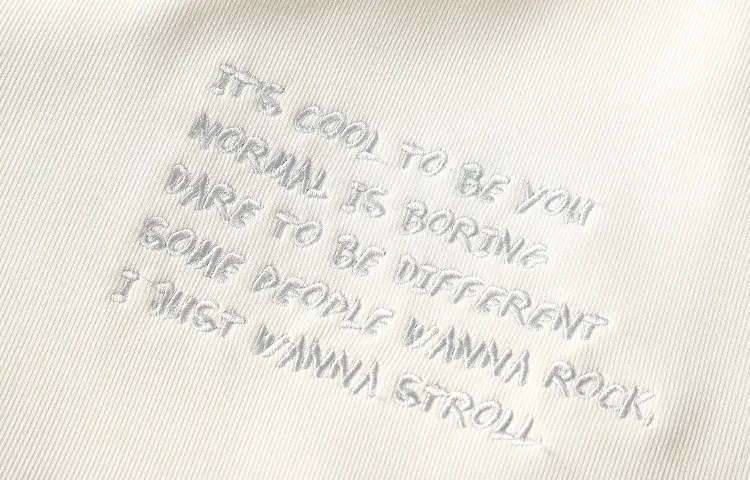 IT'S COOL TO BE YOU
NORMAL IS BORING
DARE TO BE DIFFERENT
SOME PEOPLE WANNA ROCK,
I JUST WANNA STROLL